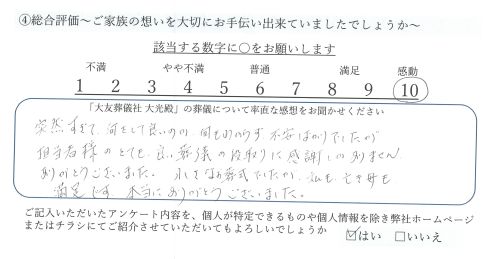 ④総合評価～ご家族の想いを大切にお手伝い出来ていましたでしょうか～
該当する数字に○をお願いします
不満 やや不満 普通 満足 感動
1 2 3 4 5 6 7 8 9 10
「大友葬儀社 大光殿」の葬儀について率直な感想をお聞かせください
突然すぎて、何をして良いのか、何もわからず不安ばかりでしたが
担当者様のとても良い葬儀の段取りに感謝しかありません
ありがとうございました。小さなお葬式でしたが、私も亡き母も
満足です。本当にありがとうございました。
ご記入いただいたアンケート内容を、個人が特定できるものや個人情報を除き弊社ホームページ
またはチラシにてご紹介させていただいてもよろしいでしょうか ☑はい □いいえ